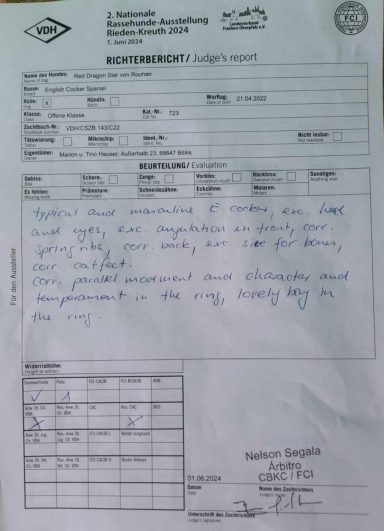 VDH
2. Nationale
Rassehunde-Ausstellung
Rieden-Kreuth 2024
1. Juni 2024
Landesverband
Franken-Oberpfalz e.V.
FCI
RICHTERBERICHT / Judge's report
Name des Hundes: Red Dragon Star von Roohan
Name of dog
Rasse: English Cocker Spaniel
Breed
Rüde: X Hündin: Wurftag: 21.04.2022
Dog Bitch Date of birth
Klasse: Offene Klasse Kat.-Nr.: 723
Class Cat. No
Zuchtbuch-Nr.: VDH/CSZB 143/C22
Studbook number
Tätowierung: Mikrochip: Ident.-Nr.: Nicht lesbar:
Tattoo Microchip Ident. No. Not readable
Eigentümer: Marion u. Tino Hauser, Außerhalb 23, 68647 Biblis
Owner
BEURTEILUNG / Evaluation
Gebiss: Schere: Zange: Vorbiss: Rückbiss: Sonstiges:
Bite Scissor bite Pincer bite Undershot mouth Overshot mouth Anything else
Es fehlen: Prämolare: Schneidezähne: Eckzähne: Molaren:
Missing teeth Premolars Incisors Canines Molars
typical and masculine E. cocker, exc. head
and eyes, exc. angulation in front, corr.
spring ribs, corr. back, exc size for bones,
corr. catfeet.
corr. parallel movement and character and
temparament in the ring, lovely boy in
the ring.
Für den Aussteller
Widerristhöhe:
Height of withers
Formwertnote Platz FCI-CACIB FCI-RCACIB BOB
✓ 1
Anw. Dt. Ch. VDH Res.-Anw. Dt. Ch. VDH CAC Res. CAC BOS
X X
Anw. Dt. Jug. Ch. VDH Res.-Anw. Dt. Jug. Ch. VDH FCI-CACIB-J Bester Junghund
Anw. Dt. Vet. Ch. VDH Res.-Anw. Dt. Vet. Ch. VDH FCI-CACIB-V Bester Veteran
Nelson Segala
Árbitro
CBKC / FCI
01.06.2024
Datum Name des Zuchtrichters
Date Judge's name
Unterschrift des Zuchtrichters
Judge's signature